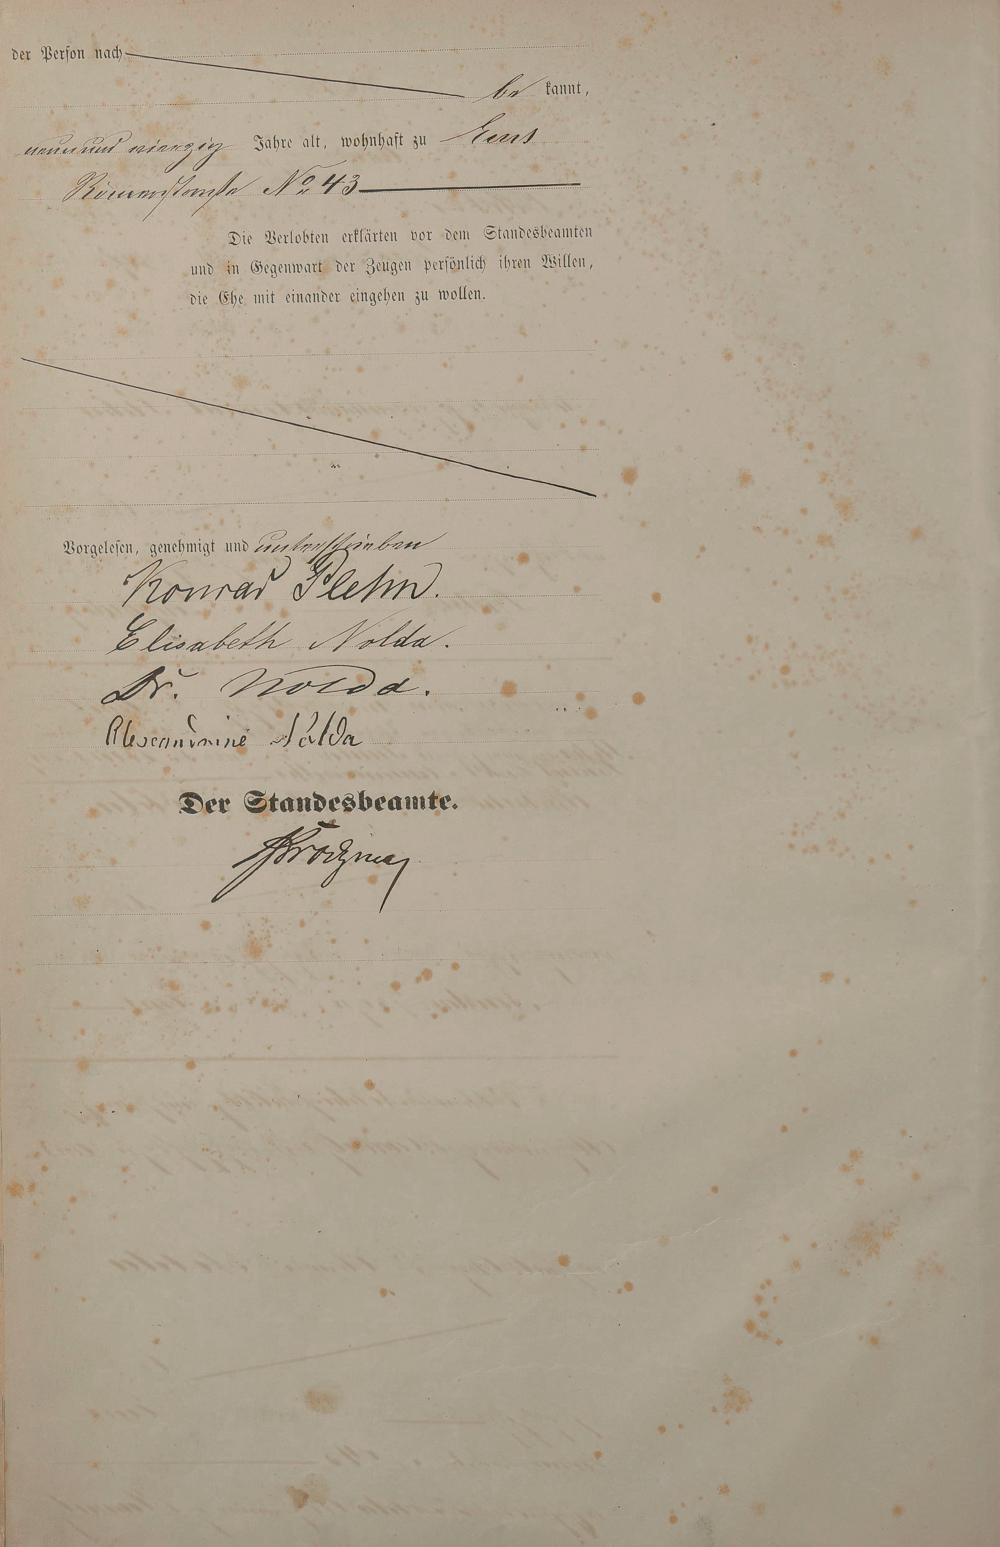 der Person nach
be kannt,
neunundvierzig Jahre alt, wohnhaft zu Ems
Römerstraße No 43
Die Verlobten erklärten vor dem Standesbeamten
und in Gegenwart der Zeugen persönlich ihren Willen,
die Ehe mit einander eingehen zu wollen.
Vorgelesen, genehmigt und unterschrieben
Konrad Plehn.
Elisabeth Nolda.
Dr. Nolda.
Alexandrine Nolda
Der Standesbeamte.